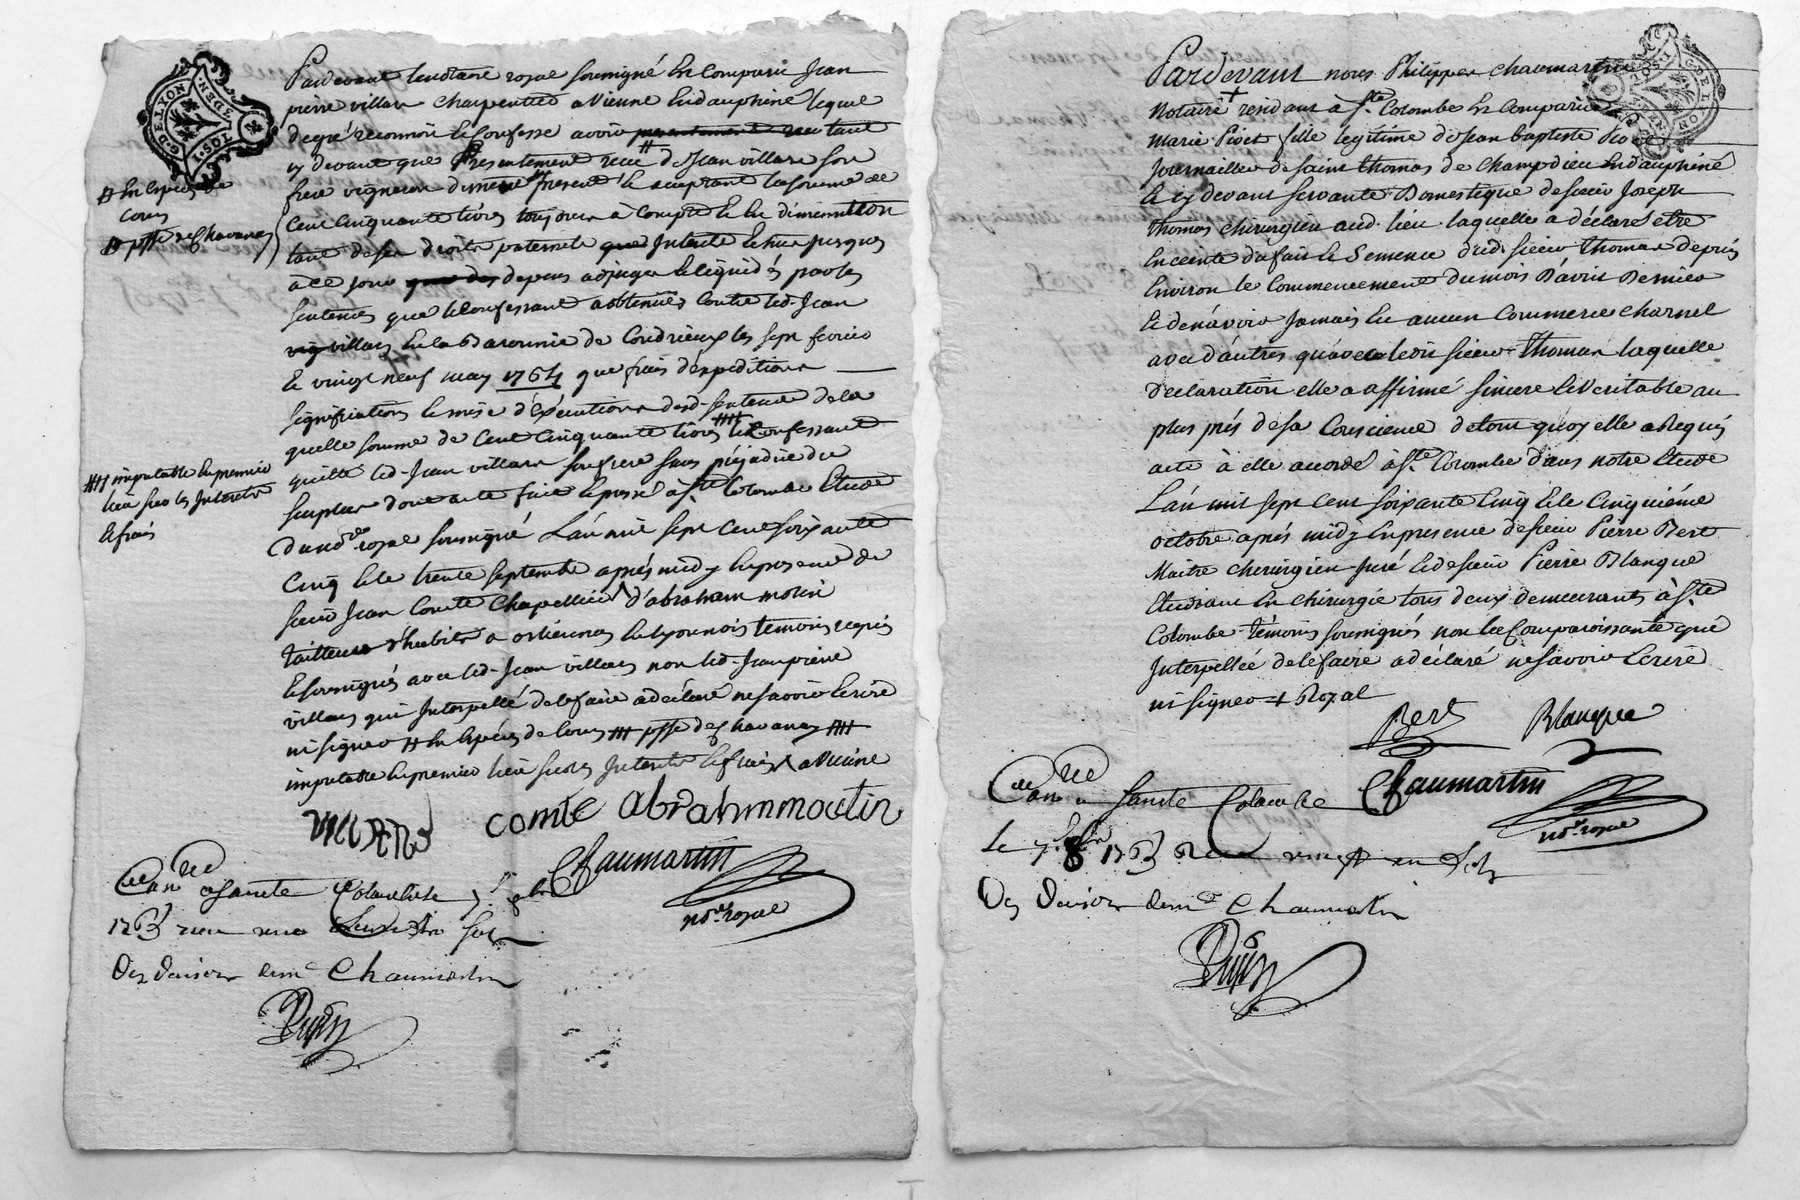 G. DE LYON
Pardevant le notaire royal soussigné est comparu Jean
pierre villars charpentier a Vienne en dauphiné lequel
de gré reconnoit et confesse avoir
cy devant que presentement receu # de Jean villars son
frere vigneron present et acceptant la somme de
cent cinquante livres toujours à compte et en diminution
tant de ses droits paternels que Interets echus jusques
à ce jour que des depens adjugés et liquidés par les
sentences que le confessant a obtenues contre led. Jean
villars en la Baronnie de Condrieux les sept fevrier
et vingt neuf may 1764 que frais d'expeditions
significations et mise d'exécutions desd. sentences de la
quelle somme de cent cinquante livres #### le Confessant
quitte led. Jean villars son frere sans préjudice du
surplus dont acte fait et passé à Ste Colombe Etude
du nore royal soussigné L'an mil sept cent soixante
Cinq et le trente septembre après midy en presence de
sieur Jean Comte Chapellier d'abraham molin
tailleur d'habits a en Lyonnois temoins requis
et soussignés avec led. Jean villars non led. Jean pierre
villars qui Interpellé de le faire a declaré ne savoir écrire
ni signer # en espèces de cours ### psse de Chavanay ####
imputable en premier lieu sur les Interets et frais a Vienne
# en espèces de
cours
## psse de Chavanay
#### imputable en premier
lieu sur les Interets
et frais
villars comte abrahmmoulin
Chaumartin
nore royal
a Sainte Colombe
1765 receu
Des Deniers dem. Chaumartin
G. DE LYON
Pardevant nous Philippe Chaumartin
Notaire + residant à Ste Colombe est comparue
Marie Piot fille legitime de Jean baptiste Piot
Journaillier de saint thomas de Champdieu en dauphiné
et cy devant servante Domestique de sieur Joseph
thomas chirurgien aud. lieu laquelle a déclaré etre
Enceinte du fait et Semence dud. sieur thomas depuis
Environ le Commencement du mois D'avril Dernier
et de n'avoir Jamais eu aucun Commerce charnel
avec d'autres qu'avec ledit sieur Thomas laquelle
Declaration elle a affirmé sincere et veritable au
plus près de sa Conscience de tout quoy elle a Requis
acte à elle accordé à Ste Colombe dans notre Etude
L'an mil sept cent soixante Cinq et le Cinquième
octobre après midy En presence de sieur Pierre Bert
Maitre chirurgien juré et de sieur Pierre Blanque
Etudiant en chirurgie tous deux demeurants à Ste
Colombe Témoins soussignés non la Comparoissante qui
Interpellée de le faire a déclaré ne savoir Ecrire
ni signer + Royal
Bert Blanque
Chaumartin
nore royal
a Sainte Colombe
Le 8 1765 Receu vingt un
Des Deniers dem. Chaumartin